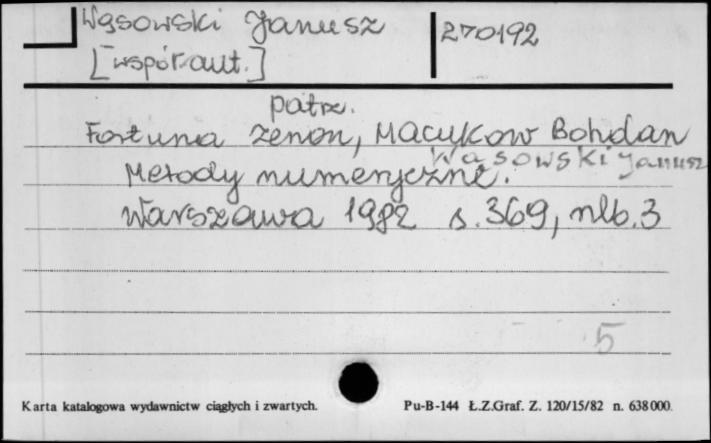 Wąsowski Janusz 270192
[współaut.]
patrz.
Fortuna Zenon, Macukow Bohdan
Wąsowski Janusz
Metody numeryczne.
Warszawa 1982 s. 369, nlb. 3
5
Karta katalogowa wydawnictw ciągłych i zwartych. Pu-B-144 Ł.Z.Graf. Z. 120/15/82 n. 638000.